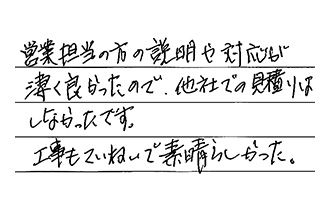 営業担当の方の説明や対応が
凄く良かったので、他社での見積りは
しなかったです。
工事もていねいで素晴らしかった。